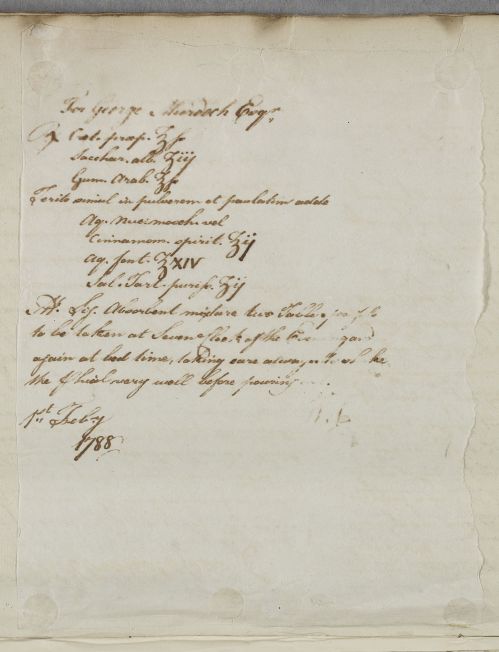 For George Murdoch Esqr
℞ Cret. præp. ℥ſs
Sacchar. alb. ʒiij
Gum. Arab. ℥ſs
Terito simul in pulverem et paulatim adde
Aq. Nuci moschi vel
Cinnamom. spirit. ℥ij
Aq. font. ℥XIV
Sal. Tart. purisſ. ʒij
M. Sig. Absorbent mixture two Table
to be taken at Seven o'Clock of the Evening and
again at bed time, taking care always to shake
the Phial very well before pouring
1st Feby
1788